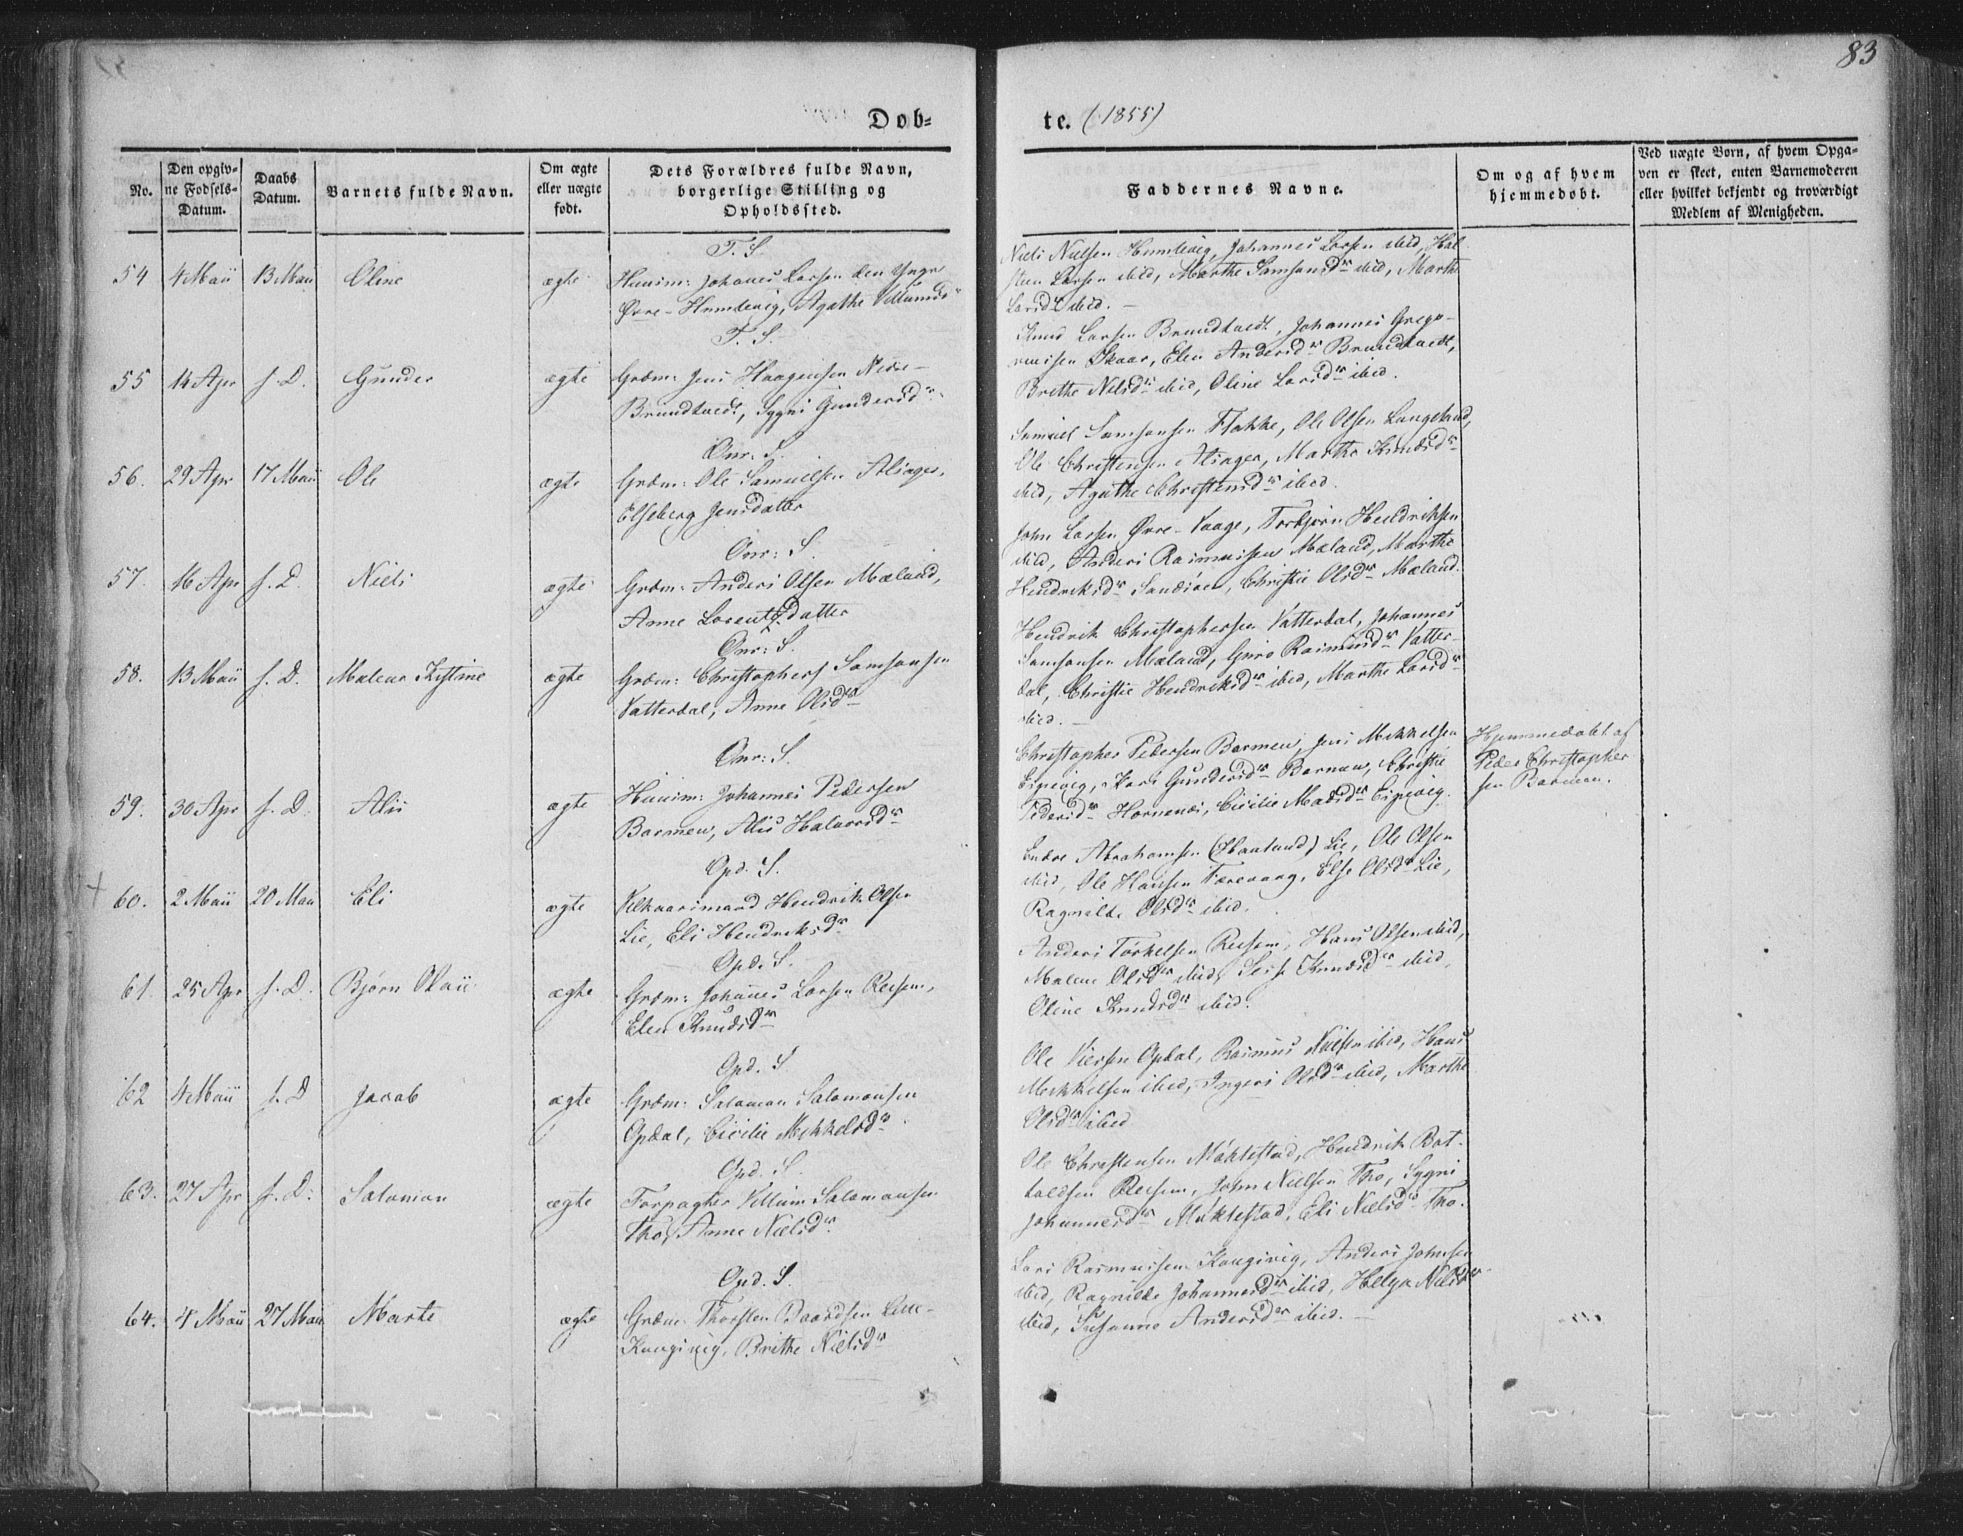 83
Dob=
te. (1855)
No.
Den opgiv=
ne Fodsels=
Datum.
Daabs
Datum.
Barnets fulde Navn.
Om ægte
eller uægte
født.
Dets Forældres fulde Navn,
borgerlige Stilling og
Opholdssted.
Faddernes Navne.
Om og af hvem
hjemmedøbt.
Ved uægte Børn, af hvem Opga=
ven er skeet, enten Barnemoderen
eller hvilket bekjendt og troværdigt
Medlem af Menigheden.
T. S.
54 4 Maii 13 Maii Oline ægte Huusm: Johanes Larsen den Yngre
Øvre-Humlevig, Agathe Villumsd
Niels Nielsen Humlevig, Johannes Larsen ibid, Hal-
sten Larsen ibid, Marthe Samsonsdr ibid, Marthe
Larsdr ibid. —
T. S.
55 14 Apr s. D. Gunder ægte Grdm: Jens Haagensen Nedre-
Brundtvedt, Sygni Gundersdr
Knud Larsen Brundtvedt, Johannes Grego-
riussen Skaar, Elen Andersdr Brundtvedt,
Brithe Nilsdr ibid, Oline Larsdr ibid.
Onr: S.
56. 29 Apr 17 Maii Ole ægte Grdm: Ole Samuelsen Alsager,
Elseberg Jensdatter
Samuel Samsonsen Flokke, Ole Olsen Langeland,
Ole Christensen Alsager, Marthe Knudsdr
ibid, Agathe Christensdr ibid.
Onr: S.
57. 16 Apr s. D. Niels ægte Grdm: Anders Olsen Mæland,
Anne Lorentsdatter
John Larsen Øvre-Vaage, Torbjørn Hendriksen
ibid, Anders Rasmussen Mæland, Marthe
Hendriksdr Sandsøen, Christie Olsdr Mæland.
Onr: S.
58. 13 Maii s. D. Malene Kistine ægte Grdm: Christophers Samsonsen
Vatterdal, Anne Olsdr
Hendrik Christophersen Vatterdal, Johannes
Samsonsen Mæland, Guro Rasmusdr Vatter-
dal, Christie Hendriksdr ibid, Marthe Larsdr
ibid. —
Onr: S.
59. 30 Apr s. D. Alis ægte Huusm: Johannes Pedersen
Barmen, Alis Halvorsdr
Christopher Pedersen Barmen, Jens Mikkelsen
Eigevig, Kari Gundersdr Barmen, Christie
Pedersdr Hornenæs, Cicilie Matsdr Eigevig.
Hjemmedøbt af
Peder Christopher
sen Barmen.
Opd. S.
60. 2 Maii 20 Maii Eli ægte Vilkaarsmand Hendrik Olsen
Lie, Eli Hendriksdr
Endre Abrahamsen (Hauland) Lie, Ole Olsen
ibid, Ole Hansen Færevaag, Else Olsdr Lie,
Ragnilde Olsdr ibid.
Opd. S.
61. 25 Apr s. D. Bjørn Olaii ægte Grdm: Johanes Larsen Reisem,
Elen Knudsdr
Anders Torkelsen Reisem, Hans Olsen ibid,
Malene Olsdr ibid, Knudsdr ibid,
Oline Knudsdr ibid.
Opd. S.
62 4 Maii s. D Jacob ægte Grdm: Salamon Salamonsen
Opdal, Cicilie Mikkelsdr
Ole Iversen Opdal, Rasmus Nielsen ibid, Hans
Mikkelsen ibid, Ingeri Olsdr ibid, Marthe
Olsdr ibid
Opd. S.
63. 27 Apr s. D. Salamon ægte Forpagter Villum Salamonsen
Tho, Anne Nielsdr
Ole Christensen Møktestad, Hendrik Bot-
toldsen Reisem, John Nielsen Tho, Sygni
Johannesdr Møktestad, Eli Nielsdr Tho.
Opd. S.
64. 4 Maii 27 Maii Marte ægte Grdm: Thorsten Baardsen Lille-
Kongsvig, Brithe Nielsdr
Lars Rasmussen Kongsvig, Anders Johnsen
ibid, Ragnilde Johannesdr ibid, Helga Nilsdr
ibid, Susanne Andersdr ibid. —